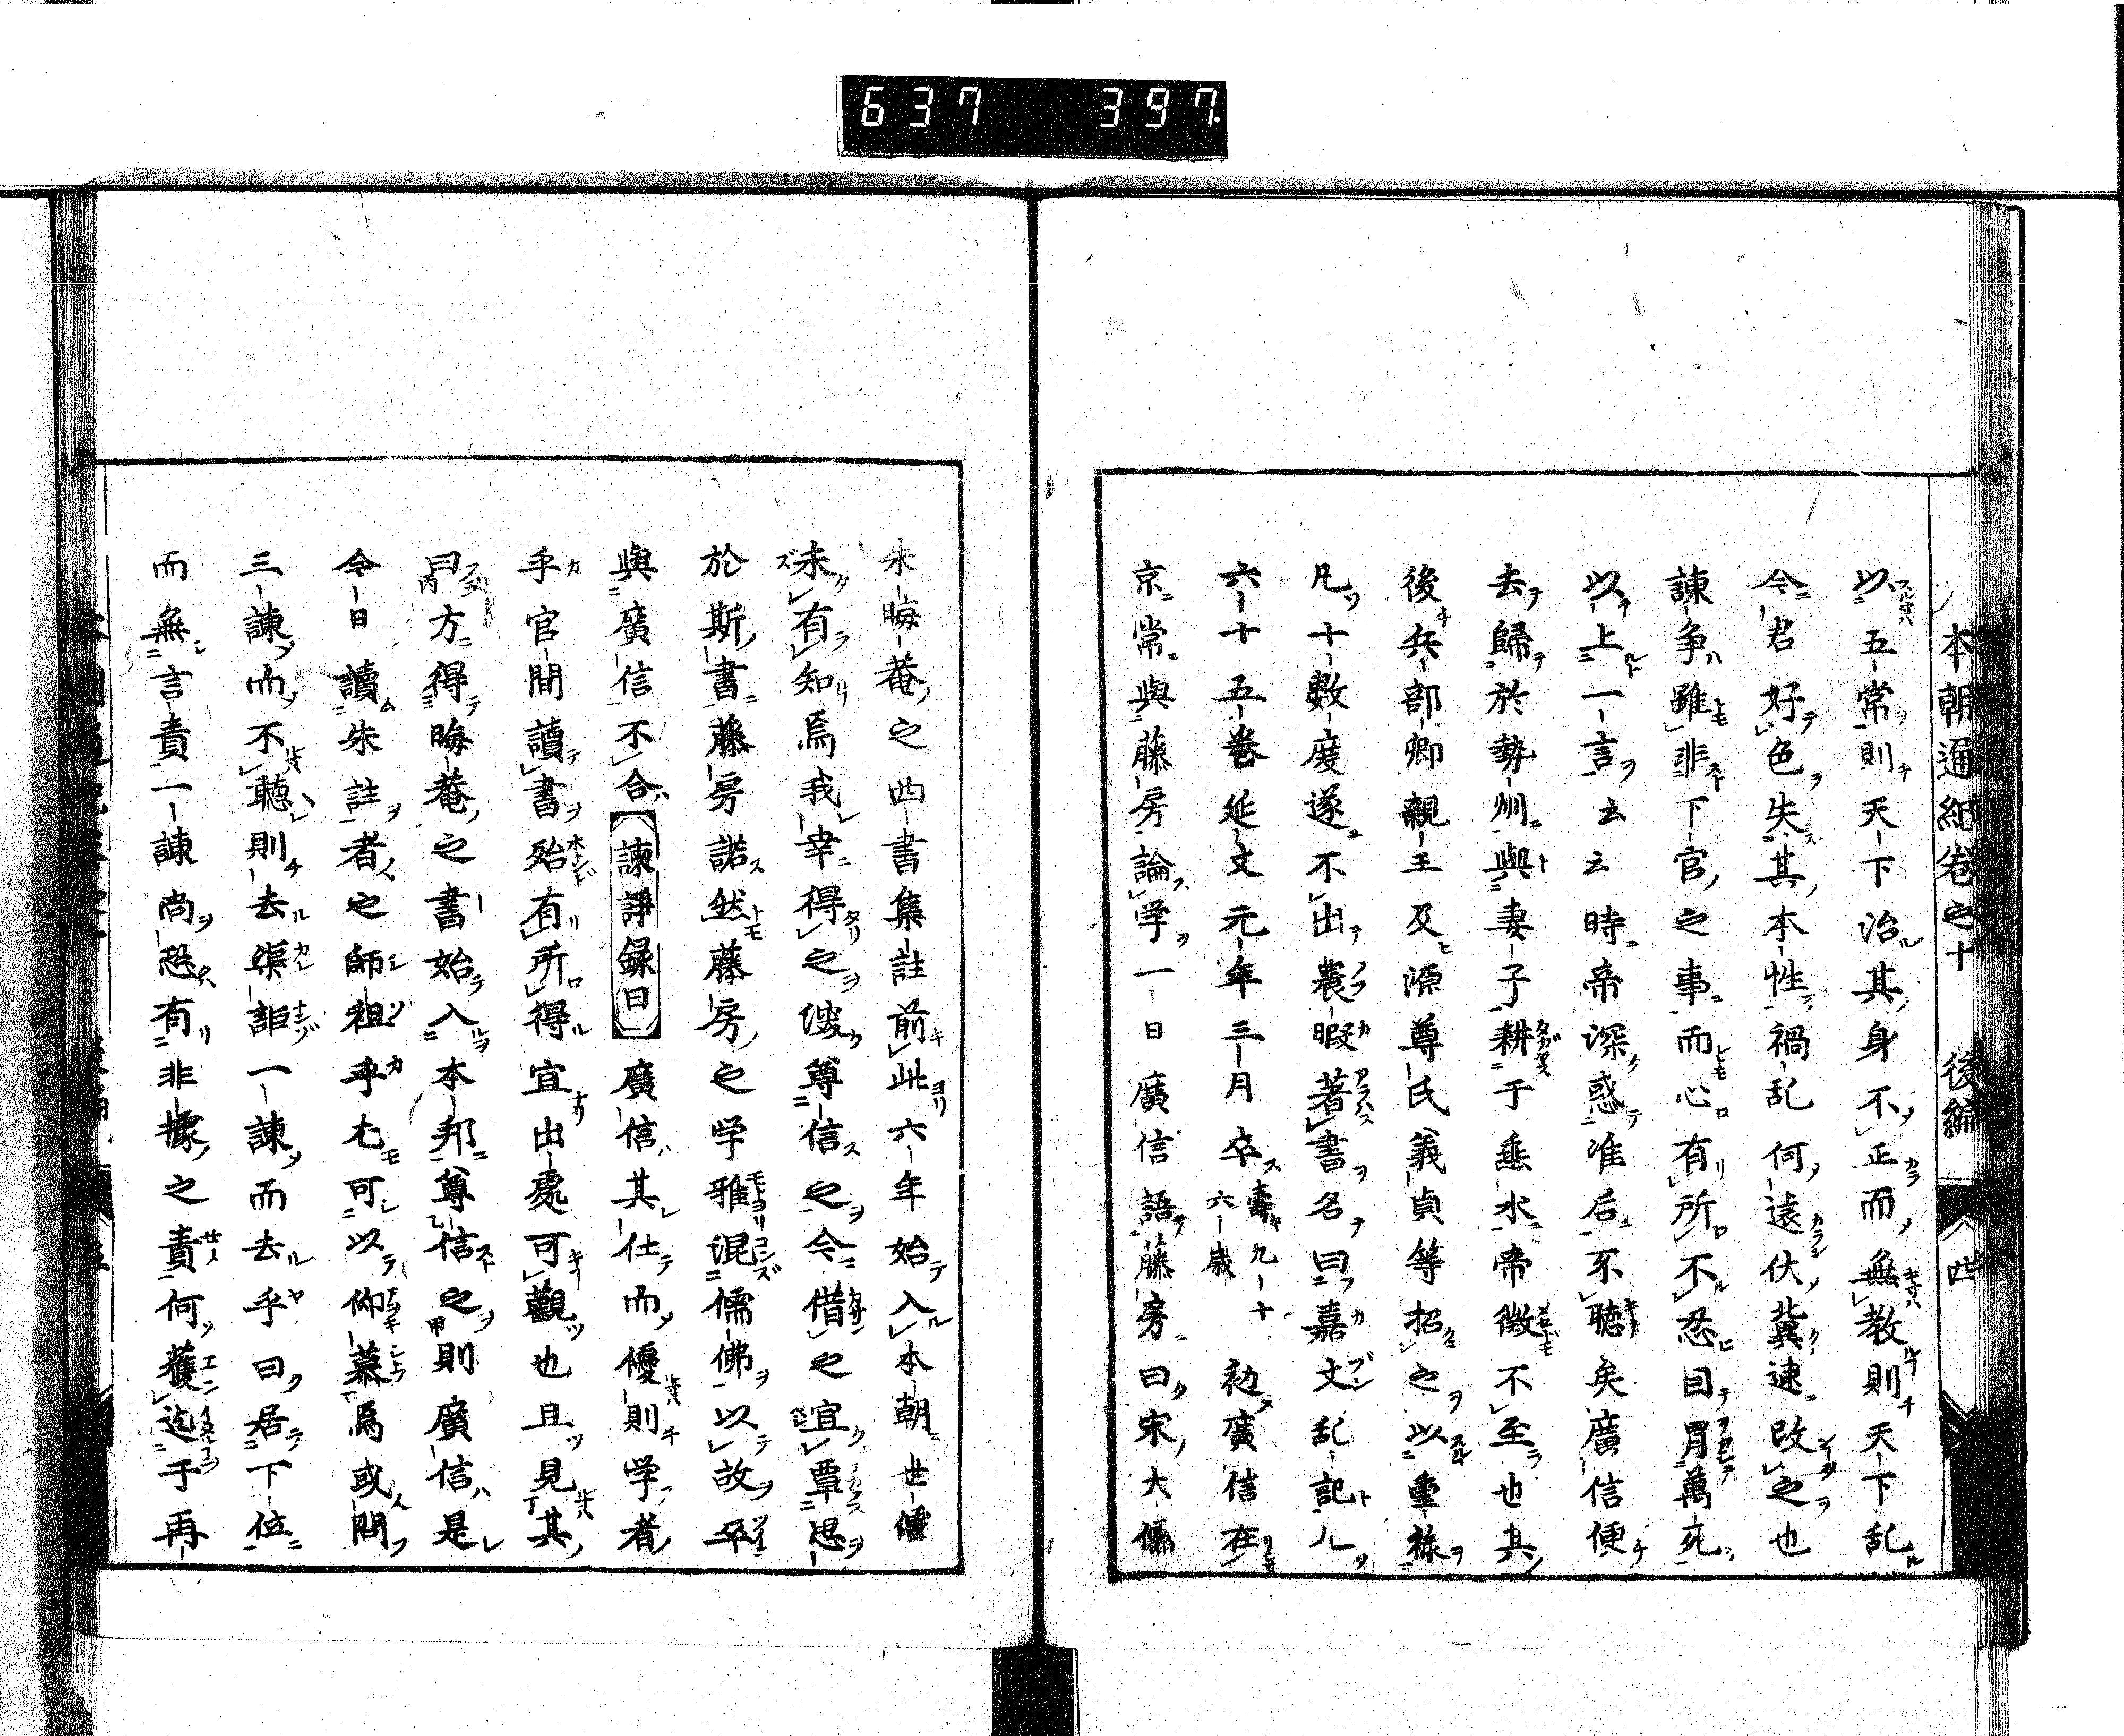 637 397
本朝通紀卷之十 後編 八 四
以五常則天下治其身不正而無教則天下乱
今君好色失其本性禍乱何遠伏冀速改之也
諫争雖非下官之事而心有所不忍目冒萬死
以上一言云云時帝深惑准后不聴矣廣信便
去歸於勢州與妻子耕于垂水帝徴不至也其
後兵部卿親王及源尊氏義貞等招之以重祿
凡十數度遂不出農暇著書名曰嘉文乱記凡
六十五巻延文元年三月卒壽九十六歳 初廣信在
京常與藤房論学一日廣信語藤房曰宋大儒
朱晦菴之四書集註前此六年始入本朝世儒
未有知焉我幸得之深尊信之今借之宜覃思
於斯書藤房諾然藤房之学雅混儒佛以故卒
與廣信不合諫諍録曰廣信其仕而優則学者
乎官間讀書殆有所得宜出處可觀也且見其
曰方得晦菴之書始入本邦尊信之則廣信是
今日讀朱註者之師祖乎尤可以仰慕焉或問
三諫而不聴則去渠詎一諫而去乎曰居下位
而無言責一諫尚恐有非據之責何獲迄于再